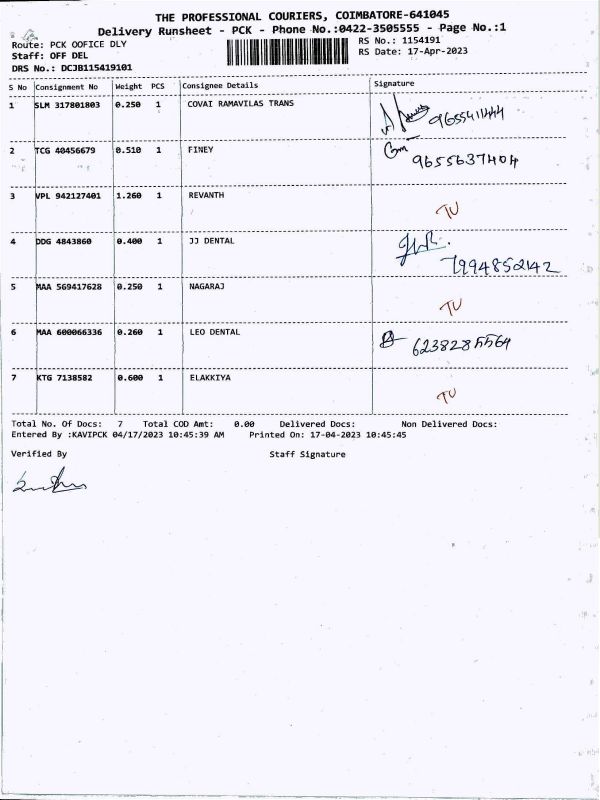 THE PROFESSIONAL COURIERS, COIMBATORE-641045
Delivery Runsheet - PCK - Phone No.:0422-3505555 - Page No.:1
Route: PCK OOFICE DLY
RS No.: 1154191
Staff: OFF DEL
RS Date: 17-Apr-2023
DRS No.: DCJB115419101
S No Consignment No Weight PCS Consignee Details Signature
1 SLM 317801803 0.250 1 COVAI RAMAVILAS TRANS
2 TCG 40456679 0.510 1 FINEY 9655637404
3 VPL 942127401 1.260 1 REVANTH TU
4 DDG 4843860 0.400 1 JJ DENTAL 7994852142
5 MAA 569417628 0.250 1 NAGARAJ TU
6 MAA 600066336 0.260 1 LEO DENTAL 6238285564
7 KTG 7138582 0.600 1 ELAKKIYA TU
Total No. Of Docs: 7 Total COD Amt: 0.00 Delivered Docs: Non Delivered Docs:
Entered By :KAVIPCK 04/17/2023 10:45:39 AM Printed On: 17-04-2023 10:45:45
Verified By Staff Signature